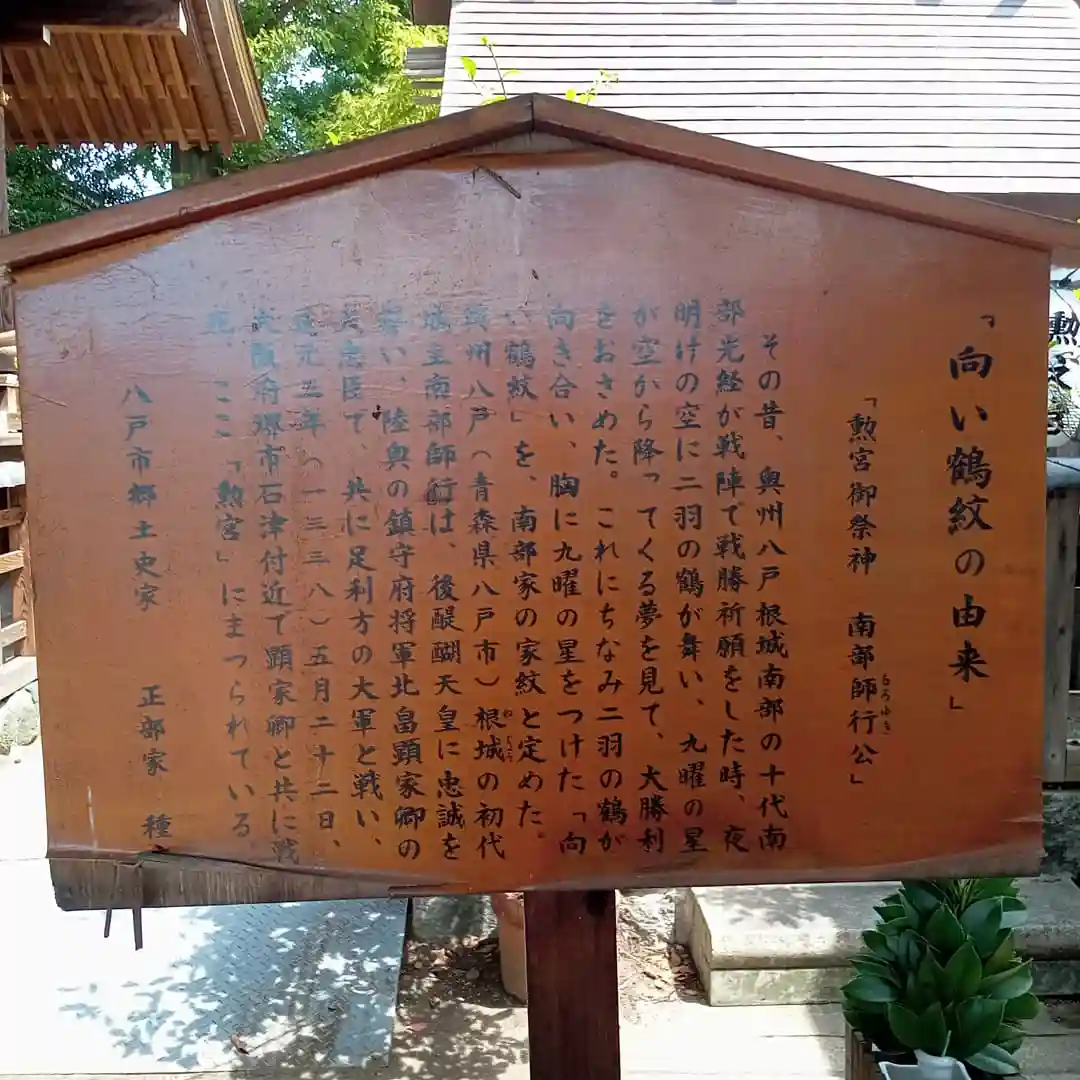 「向い鶴紋の由来」
「勲宮御祭神　南部師行公」
もろゆき
その昔、奥州八戸根城南部の十代南
部光経が戦陣で戦勝祈願をした時、夜
明けの空に二羽の鶴が舞い、九曜の星
が空から降ってくる夢を見て、大勝利
をおさめた。これにちなみ二羽の鶴が
向き合い、胸に九曜の星をつけた「向
い鶴紋」を、南部家の家紋と定めた。
奥州八戸（青森県八戸市）根城の初代
ねじょう
城主南部師行は、後醍醐天皇に忠誠を
誓い、陸奥の鎮守府将軍北畠顕家卿の
忠臣で、共に足利方の大軍と戦い、
延元三年（一三三八）五月二十二日、
大阪府堺市石津付近で顕家卿と共に戦
死、ここ「勲宮」にまつられている
八戸市郷土史家　正部家　種
勲